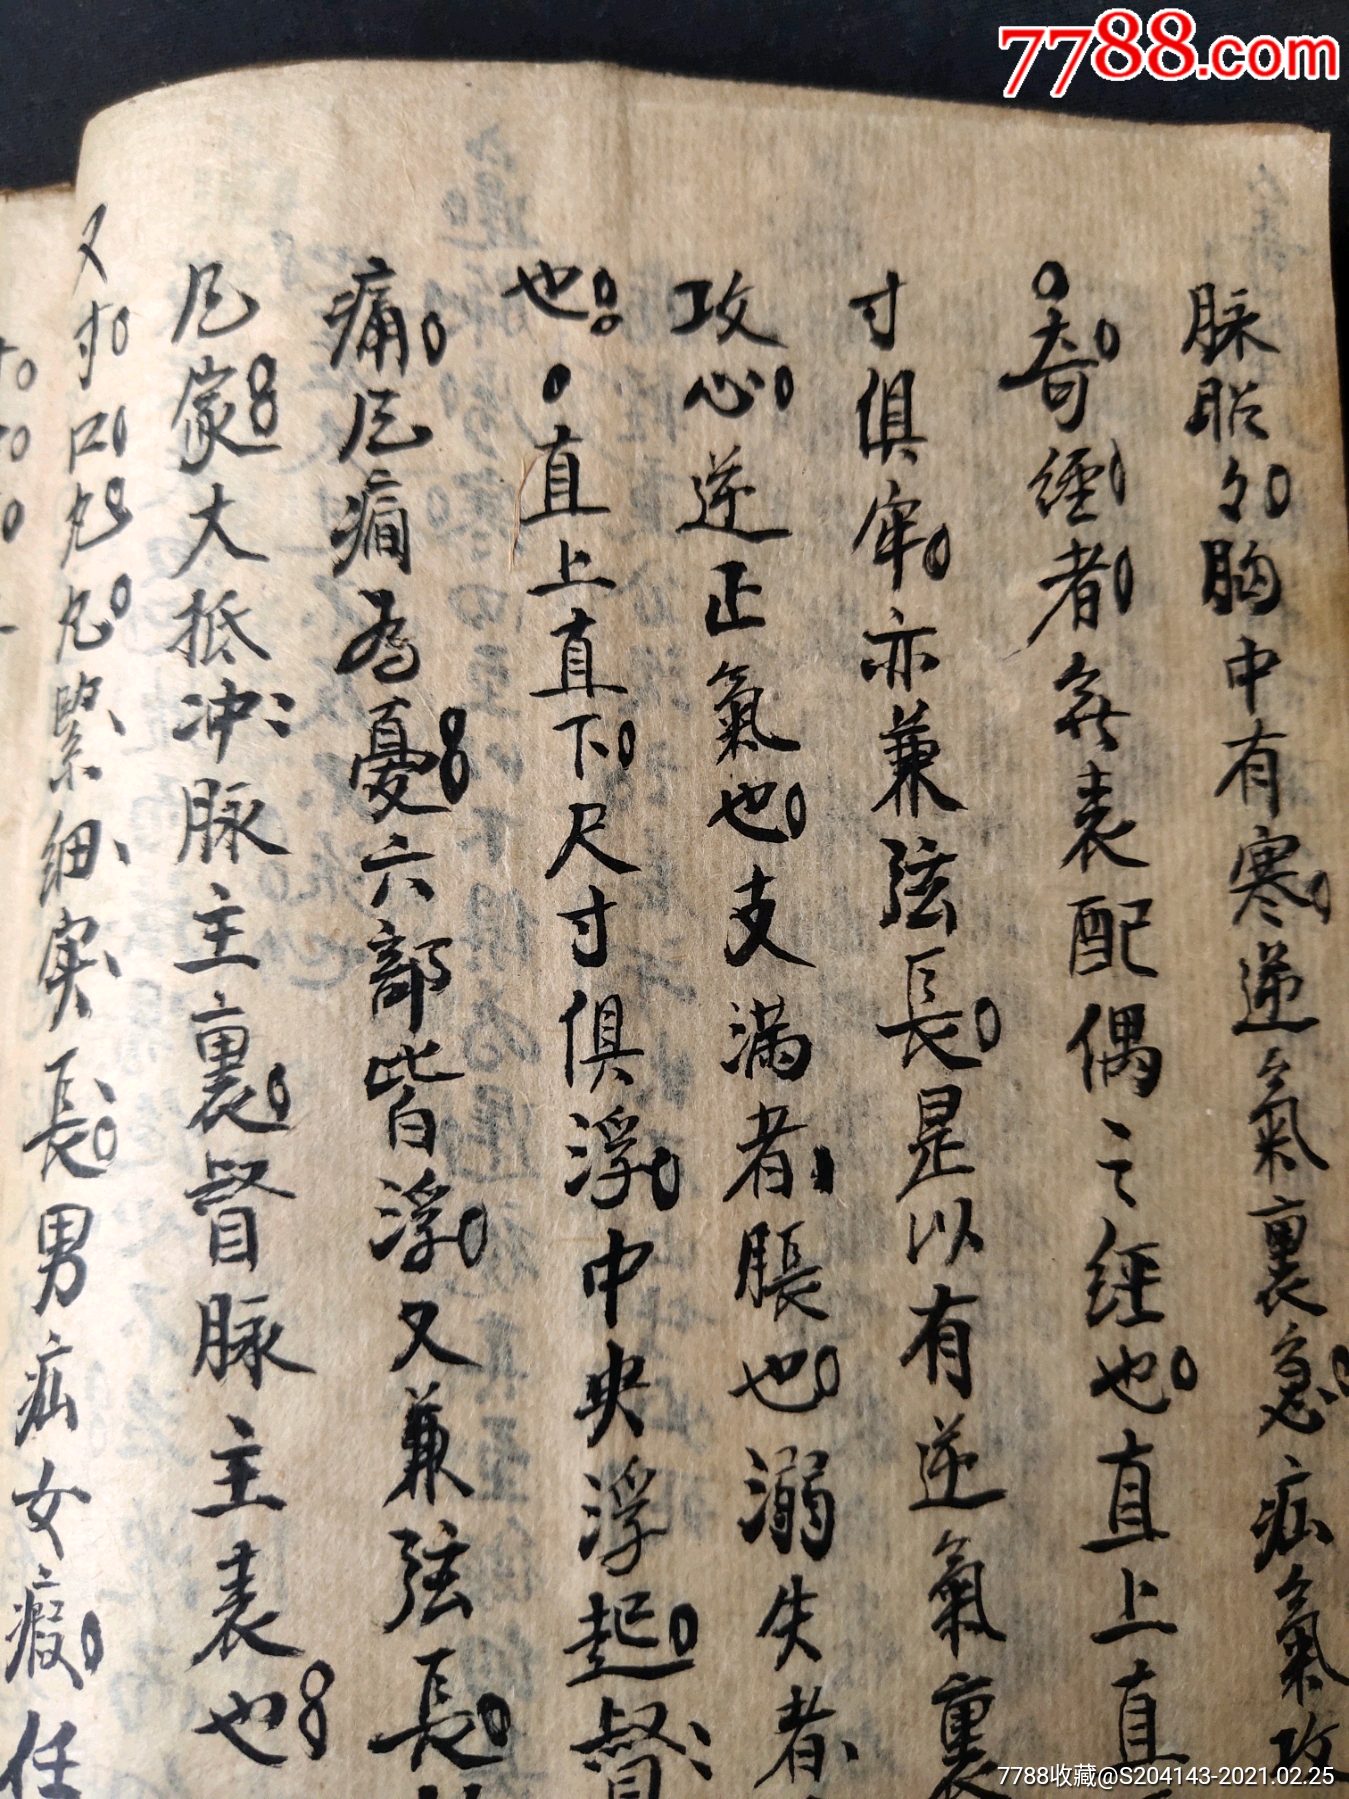 7788.com
脉 胸中有寒逆氣裏急疝氣攻
奇經者無表配偶之經也直上直
寸俱牢亦兼弦長是以有逆氣裏
攻心逆正氣也支滿者脹也溺失者
也直上直下尺寸俱浮中央浮起督
痛 為憂六部皆浮又兼弦長
大抵冲脉主裏督脉主表也
又寸口丸丸緊細实長男疝女瘕任
7788收藏@S204143-2021.02.25